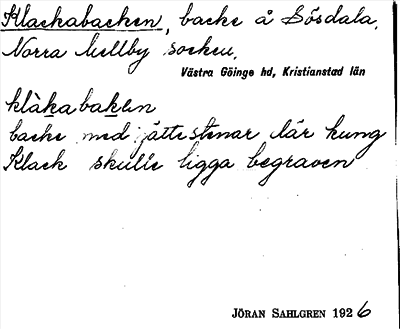 Klackabacken, backe å Sösdala,
Norra Mellby socken,
Västra Göinge hd, Kristianstad län
klàkabaken
backe med jättestenar där kung
Klack skulle ligga begraven
JÖRAN SAHLGREN 1926